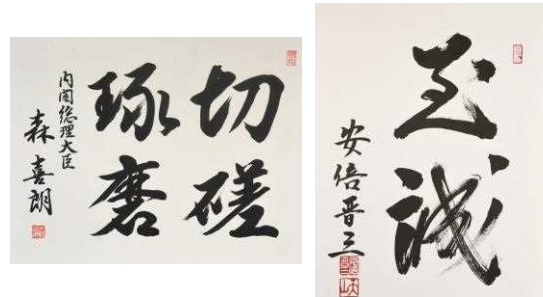 切磋
琢磨
内閣総理大臣
森喜朗
至誠
安倍晋三